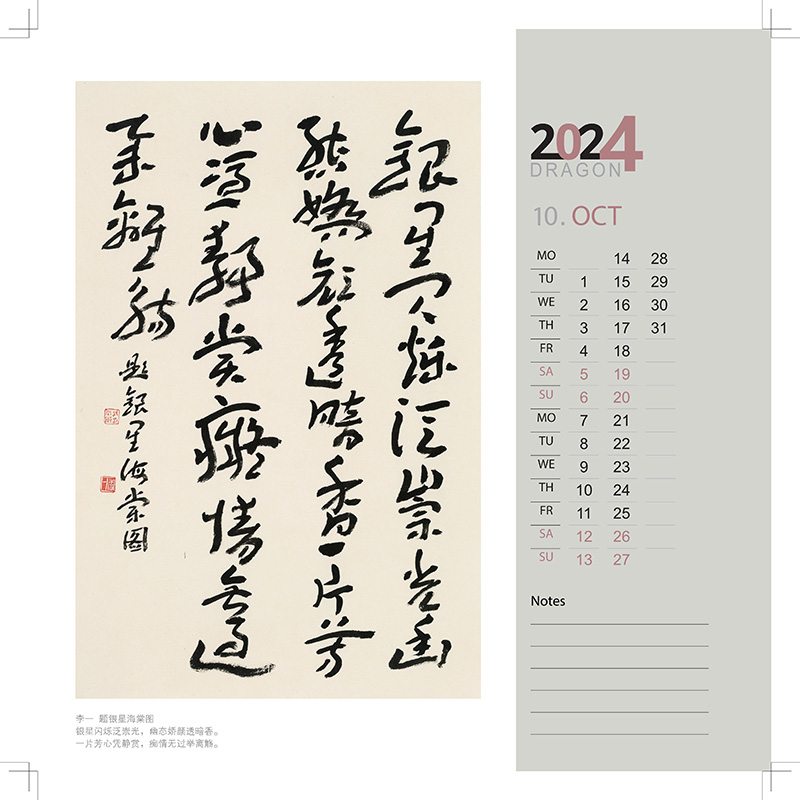 銀星閃爍泛崇光幽
態嬌顏透暗香一片芳
心憑靜賞癡情無過
舉離觴
題銀星海棠图
李一 题银星海棠图
银星闪烁泛崇光，幽态娇颜透暗香。
一片芳心凭静赏，痴情无过举离觞。
2024
DRAGON
10. OCT
MO 14 28
TU 1 15 29
WE 2 16 30
TH 3 17 31
FR 4 18
SA 5 19
SU 6 20
MO 7 21
TU 8 22
WE 9 23
TH 10 24
FR 11 25
SA 12 26
SU 13 27
Notes